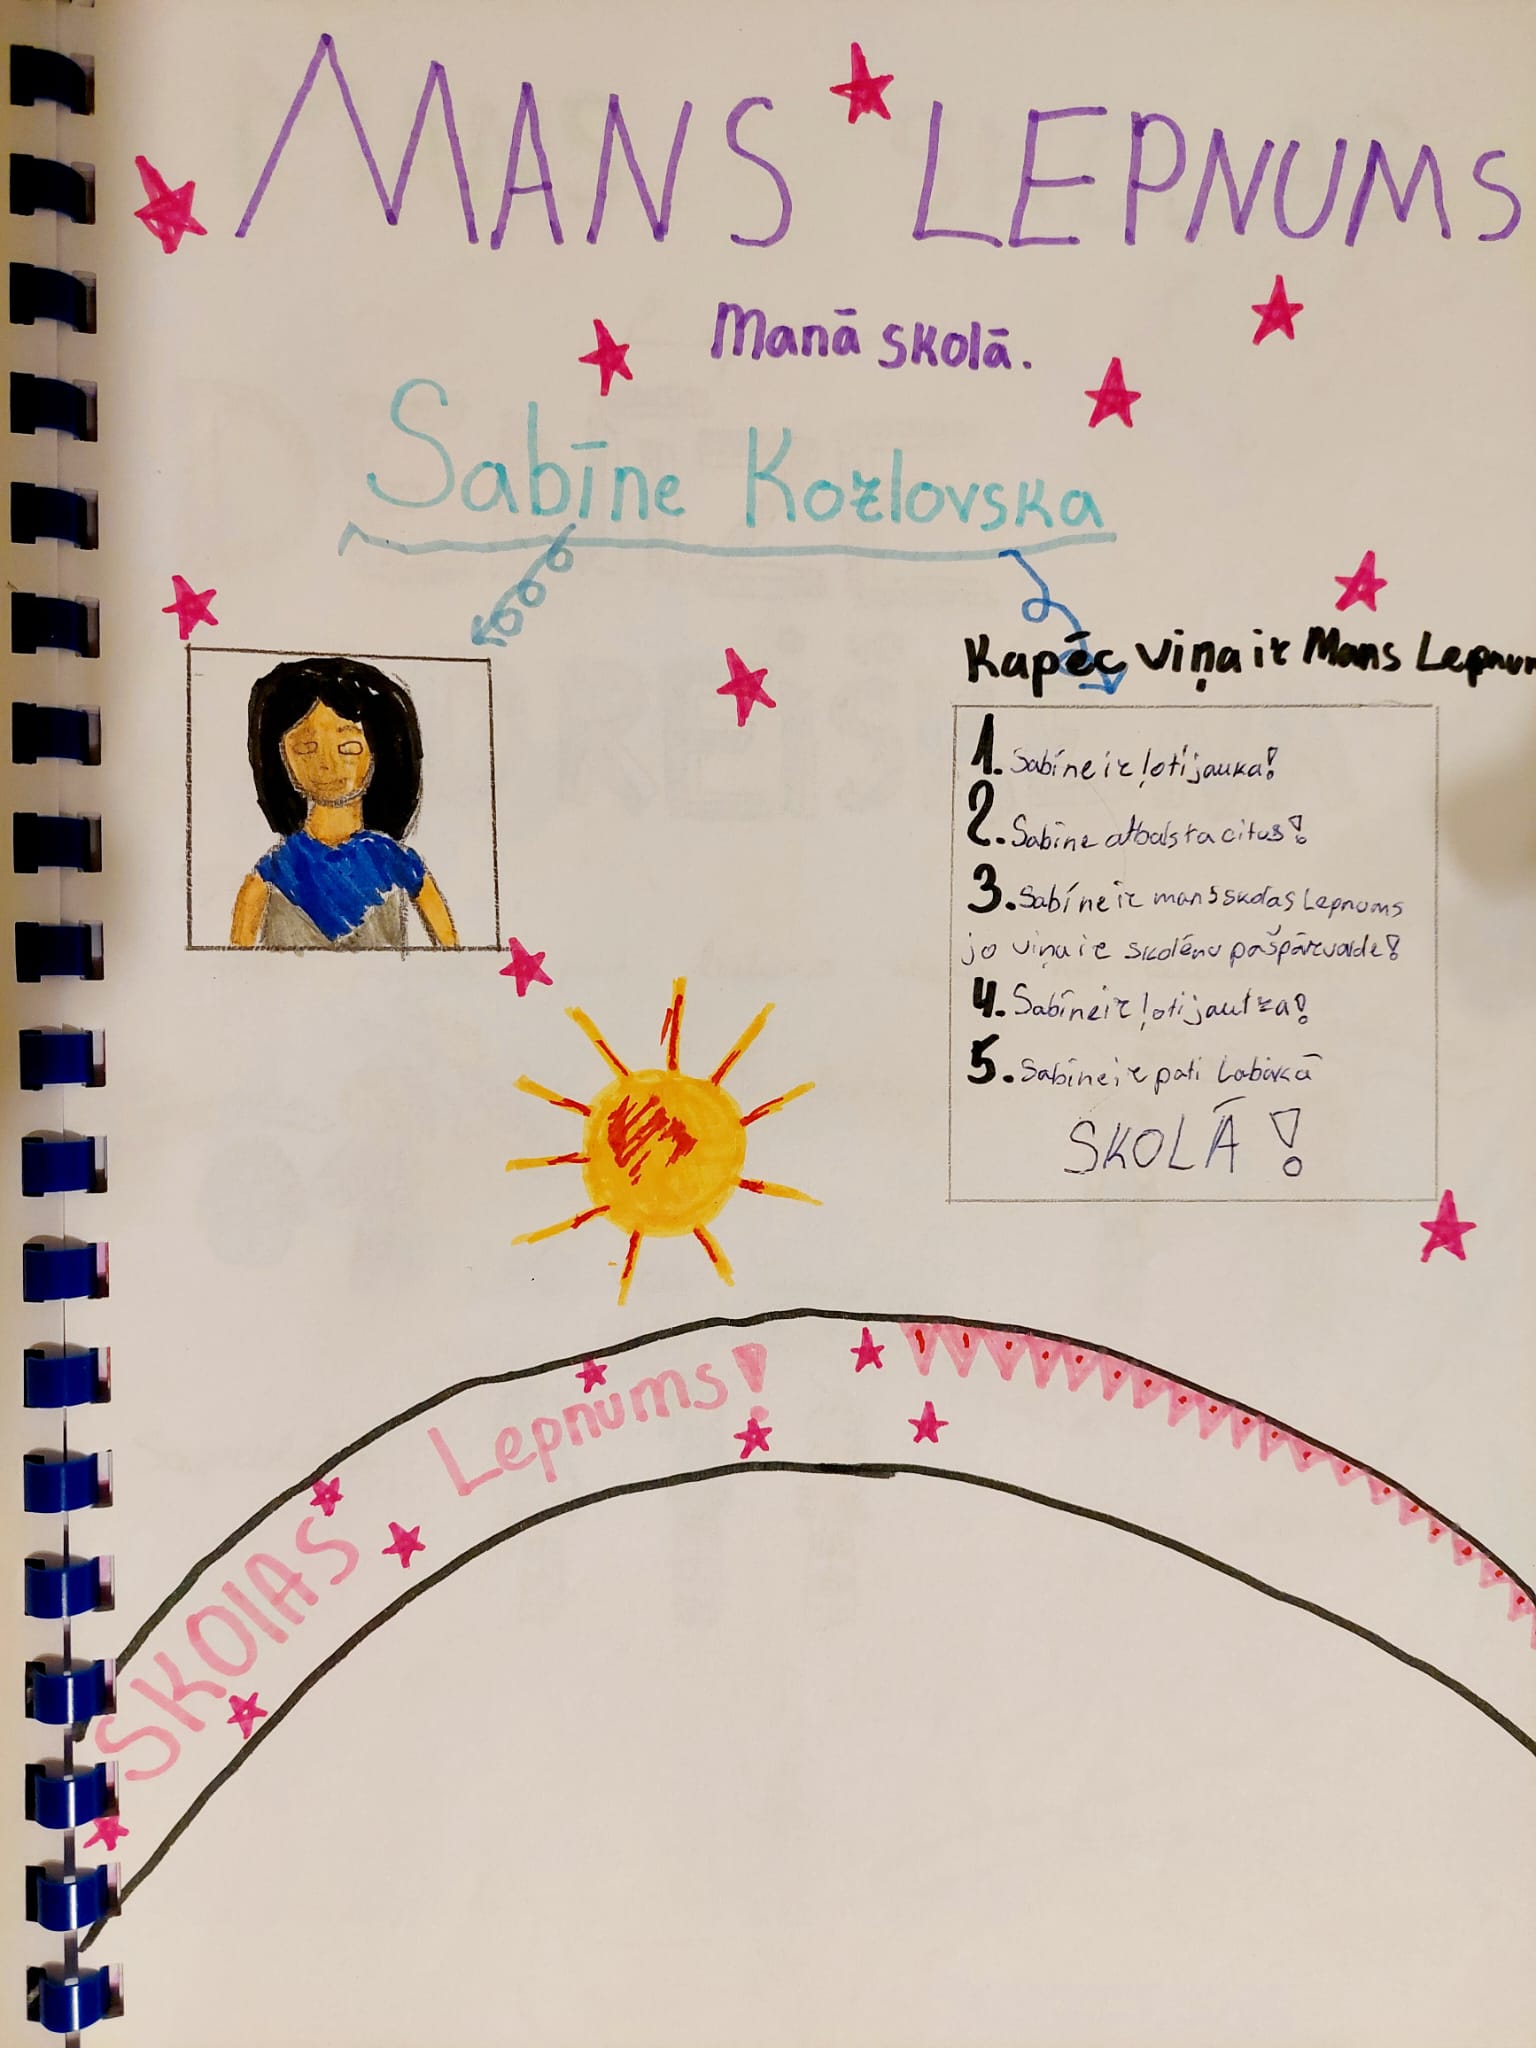 MANS LEPNUMS
Manā skolā.
Sabīne Kozlovska
Kapēc viņa ir Mans Lepnum
1. Sabīne ir ļoti jauka!
2. Sabīne atbalsta citus!
3. Sabīne ir mans skolas Lepnums
jo viņa ir skolēnu pašpārvalde!
4. Sabīne ir ļoti jautra!
5. Sabīne ir pati Labākā
SKOLĀ!
SKOlAS Lepnums!